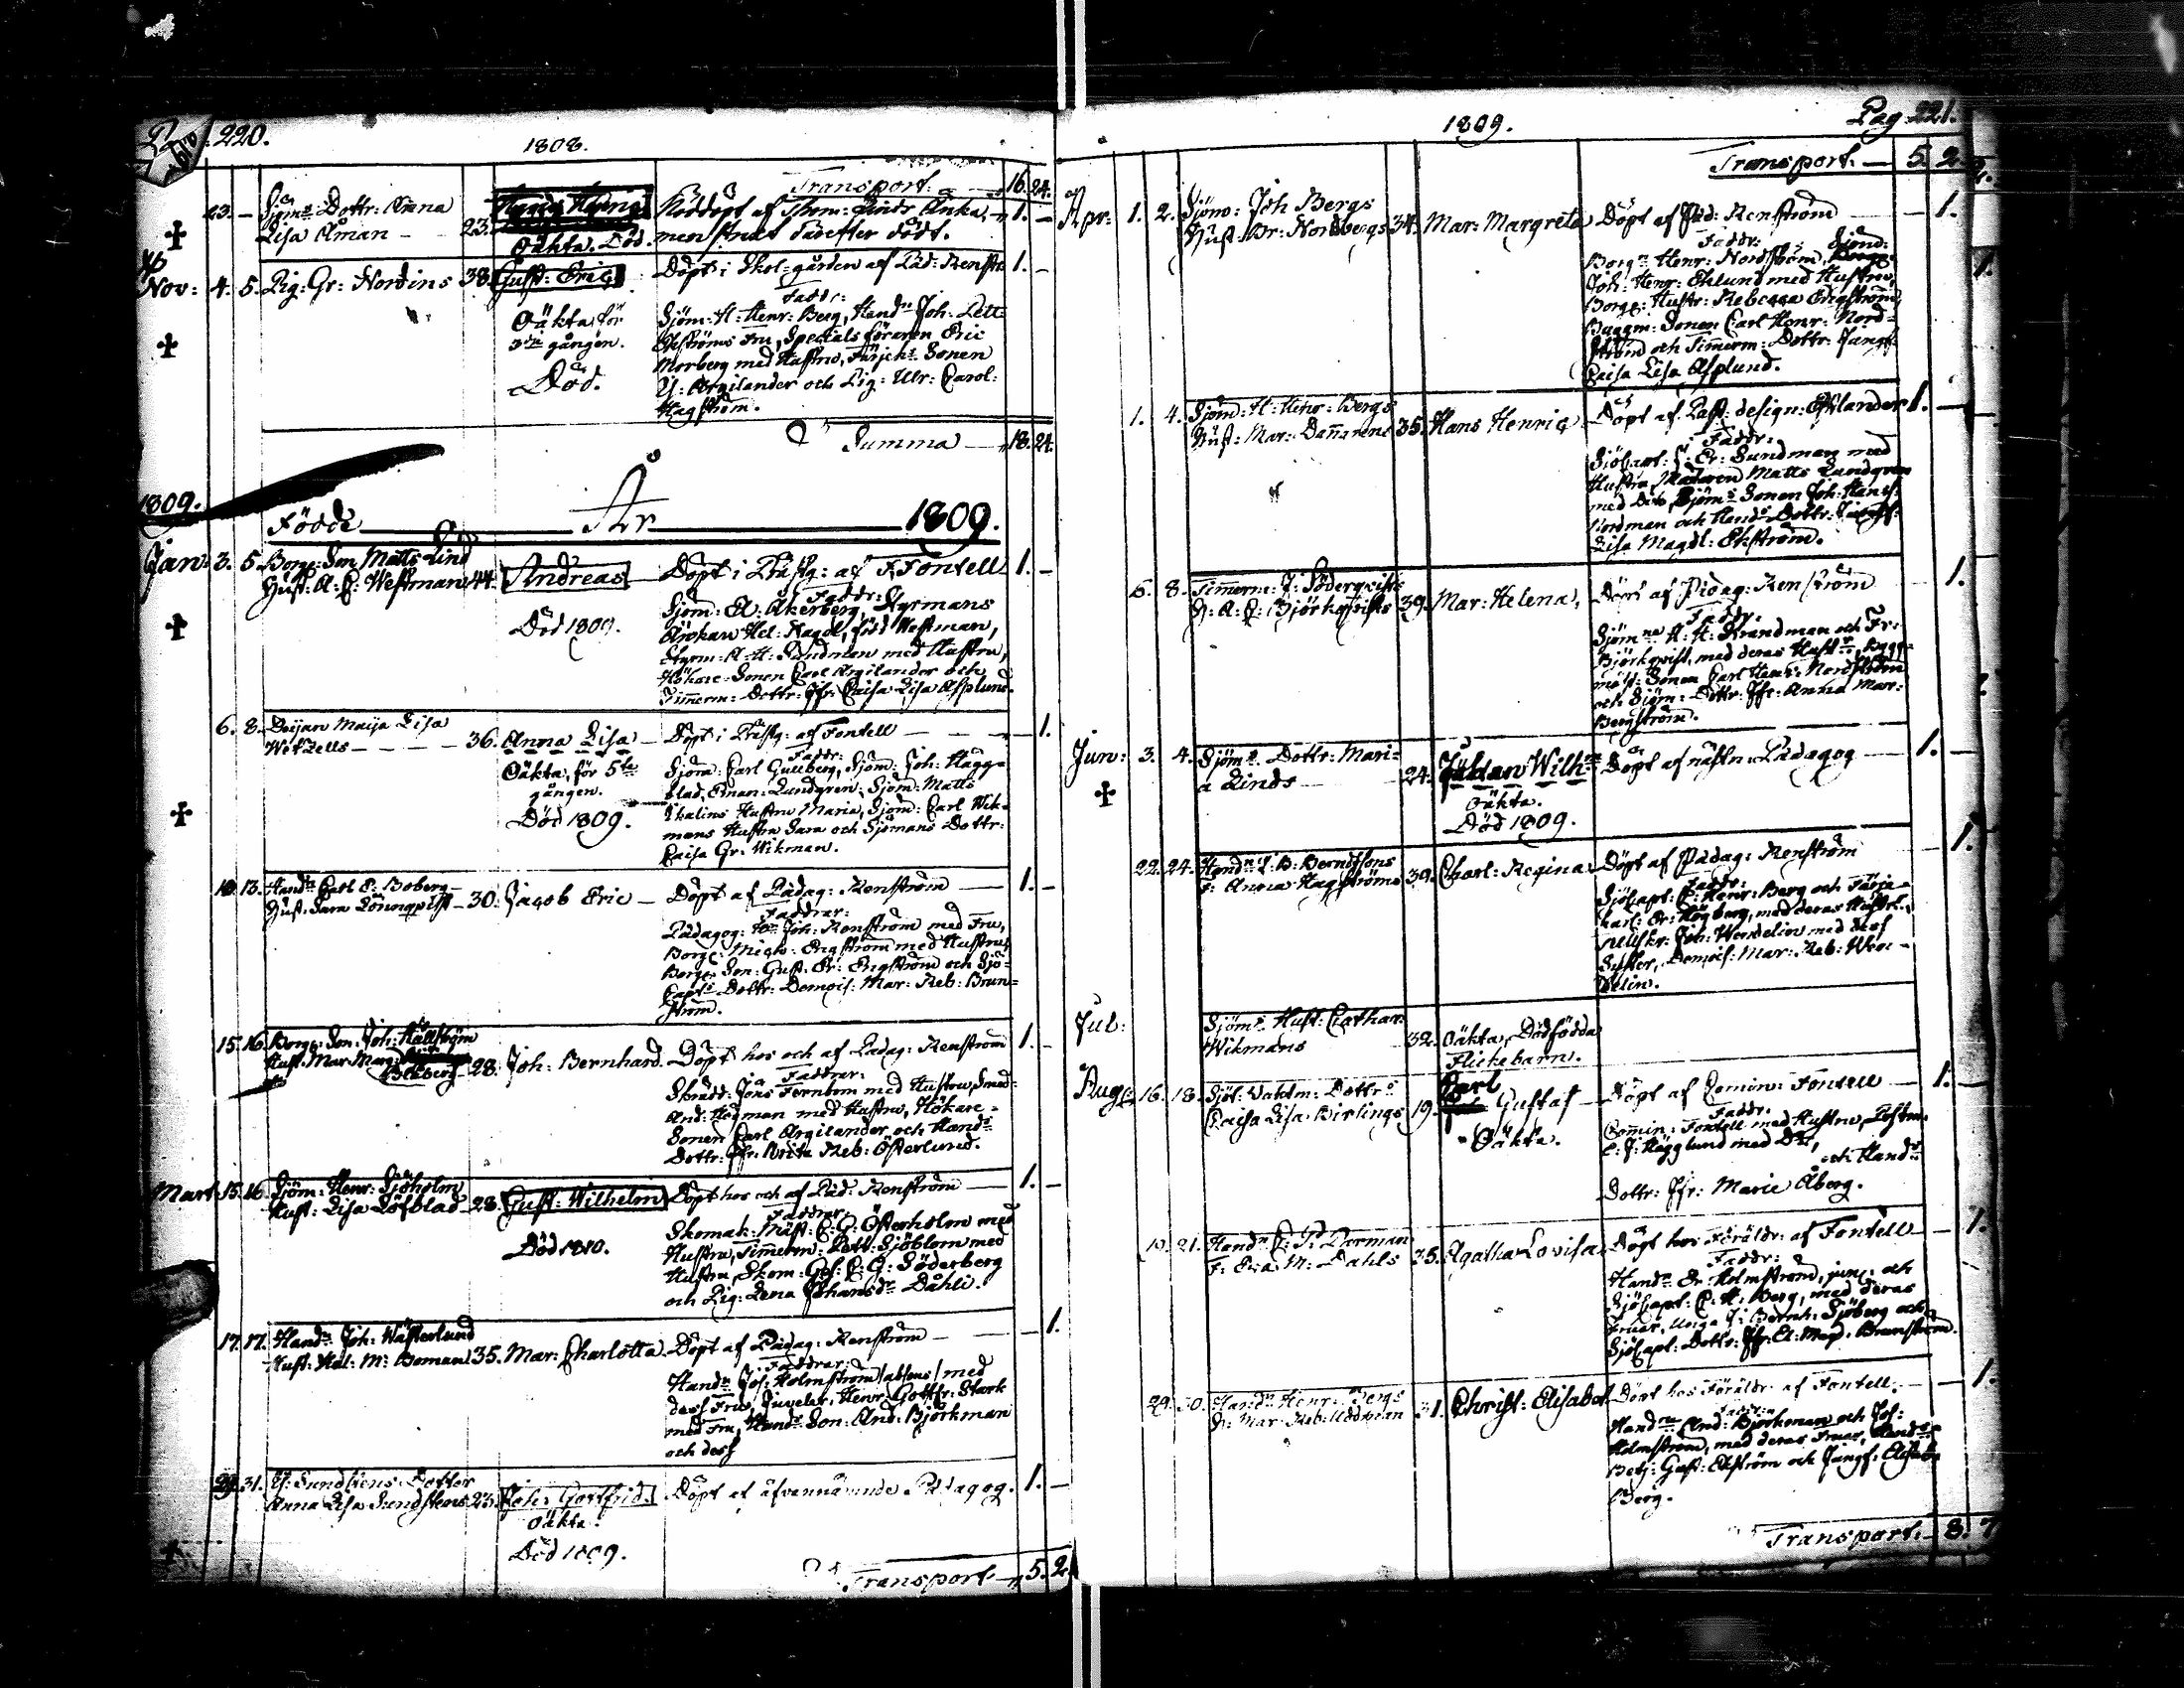 220.
1808.
Transport. 16. 24.
23. Sjöms Dottr: Anna Lisa Åman 23.
Oäkta. Död.
Nöddöpt af Thom: Linds Änka, 1.
men strax därefter dödt.
Nov: 4. 5. Pig: Gr: Nordins 38. Gust: Eric
Oäkta, för
3die gången.
Död.
Döpt i Skol-gården af Päd: Renstr: 1.
Faddr:
Sjöm: H: Henr: Berg, Handn Joh: Pett:
Ekströms Fru, Specials föraren Eric
Norberg med Hustru, Sonen
Argilander och Pig: Ulr: Carol:
Hagström.
Summa 18. 24.
1809.
Födde År 1809.
Jan: 3. 5. Borg: Son Matts Lind
Hust: A: C: Westman 44. Andreas
Död 1809.
Döpt i Prästg: af F. Fontell 1.
Faddr:
Sjöm: A: Åkerberg, Styrmans
Änkan Hel: Nagel, född Westman,
Styrm: A: H: Sundman med Hustru,
Hökare-Sonen Carl Argilander och
Timmerm: Dottr: Jfr: Caisa Lisa Asplund.
6. 8. Deijan Maija Lisa
Wetzells 36. Anna Lisa
Oäkta, för 5te
gången.
Död 1809.
Döpt i Prästg: af Fontell 1.
Faddr:
Sjöm: Carl Gullberg, Sjöm: Joh: Hägg-
blad, Eman: Lundgren, Sjöm: Matts
Skalins Hustru Maria, Sjöm: Carl Wik-
mans Hustru Sara och Sjömans Dottr:
Caisa Gr: Wikman.
10. 13. Handn Carl P: Boberg
Hust: Sara Lönnqvist 30. Jacob Eric
Döpt af Pädag: Renström 1.
Faddrar:
Pädagog: Joh: Renström med Fru,
Borg: Mich: Engström med Hustru,
Borg: Son: Gust: Er: Engström och Sjö-
Capts Dottr: Demois: Mar: Reb: Brun-
ström.
15. 16. Borg: Son: Joh: Källström
Hust: Mar: Marg: 28. Joh: Bernhard.
Döpt hos och af Pädag: Renström 1.
Faddrar:
Skrädd: Jöns Fernbom med Hustru, Smed-
And: Hedman med Hustru, Hökare-
Sonen Carl Argilander och Hands
Dottr: Jfr: Brita Reb: Österlund.
Mart: 15. 16. Sjöm: Henr: Sjöholm
Hust: Lisa Löfblad 28. Gust: Wilhelm
Död 1810.
Döpt hos och af Päd: Renström 1.
Faddrar:
Skomak: Mäst: C: G: Österholm med
Hustru, Timmerm: Pett: Sjöblom med
Hustru, Skom: Ges: C: G: Söderberg
och Pig: Lena Johansdr Dåhli.
17. 17. Handn Joh: Wästerlund
Hust: Hel: M: Boman 35. Mar: Charlotta
Döpt af Pädag: Renström 1.
Faddrar:
Handn Jos: Holmström /absens/ med
dess Fru, Juveler, Henr: Gottfr: Stark
med Fru, Hands Son: And: Björkman
och dess
29. 31. Sundstens Dotter
Anna Lisa Sundstens 23. Joh: Gottfrid.
Oäkta.
Död 1809.
Döpt af äfvannämnde Pädagog. 1.
Transport 5. 2.
1809.
Pag 221.
Transport. 5. 2.
Apr: 1. 2. Sjöm: Joh Bergs
Hust: Br: Nordbergs 34. Mar: Margreta
Döpt af Päd: Renström 1.
Faddr:
Borgn Henr: Nordström,
Joh: Henr: Eklund med Hustru,
Borg: Hustr: Rebecca Engström,
Byggm: Sonen Carl Henr: Nord-
ström och Timmerm: Dottr: Jungf:
Caisa Lisa Asplund.
1. 4. Sjöm: H: Henr: Bergs
Hust: Mar: Dannarens 35. Hans Henric
Döpt af Past: design: Estlander 1.
Faddr:
Sjöcapt: Er: Sundman med
Hustru, Matts Lundgren
med Dito, Sjöms Sonen Joh:
Nordman och Hands Dottr: Jungf:
Lisa Magdl: Ekström.
6. 8. Timmerm: J: Söderqvists
H: A: C: Björkqvists 39. Mar: Helena,
Döpt af Pädag: Renström 1.
Faddr:
Sjömne A: H: Strandman och Fr:
Björkqvist, med deras Hustr, Bygg-
mäst: Sonen Carl Henr: Nordström
och Sjöm: Dottr: Jfr: Anna Mar:
Bergström.
Jun: 3. 4. Sjöms Dottr: Mari-
a Linds 24. Johan Wilhm
Oäkta.
Död 1809.
Döpt af nästn: Pädagog 1.
22. 24. Handn J: B: Berndtsons
F: Anna Hagströms 30. Charl: Regina
Döpt af Pädag: Renström 1.
Faddr:
Sjöcapt: C: Henr: Berg och Färje-
karl: Er: Högberg, med deras Hustr:,
Joh: Wendelin med dess
Syster, Demois: Mar: Reb: Wen-
delin.
Jul: Sjöms Hust: Cathar:
Wikmans 32. Oäkta, Dödfödda
Flickebarn.
Aug: 16. 18. Sjöt: Vaktm: Dottrs
Caisa Lisa Birlings 19. Carl Gustaf
Oäkta.
Döpt af Comin: Fontell 1.
Faddr:
Comin: Fontell med Hustru, Postm:
C: J: Hägglund med Do,
och Hands
Dottr: Jfr: Marie Åberg.
19. 21. Handn C: P: Parman
F: Eva M: Dahls 35. Agatha Lovisa
Döpt hos Föräldr: af Fontell 1.
Faddr:
Handn Er: Holmström, jun: och
Sjöcapt: C: H: Berg, med deras
Fruar, Unga J: Bernh: Sjöberg och
Sjöcapt: Dottr: Jfr: El: Mag: Brunström.
29. 30. Handn Henr: Bergs
H: Mar: Reb: Uddman 31. Christ: Elisabet
Döpt hos Föräldr: af Fontell. 1.
Faddr:
Handne And: Björkman och Jos:
Holmström, med deras Fruar, Hands
Betj: Gust: Ekström och Jungf: Elisab:
Berg.
Transport. 8. 7